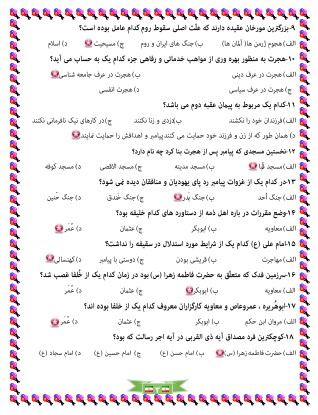 ۹-بزرگترین مورخان عقیده دارند که علت اصلی سقوط روم کدام عامل بوده است؟
الف) هجوم ژرمن ها( آلمان ها) ب) جنگ های ایران و روم ج) مسیحیت د) اسلام
۱۰-هجرت به منظور بهره وری از مواهب خدماتی و رفاهی جزء کدام یک به حساب می آید؟
الف) هجرت در عرف دینی ب) هجرت در عرف جامعه شناسی
ج) هجرت در عرف سیاسی د) هجرت انفسی
۱۱-کدام یک مربوط به پیمان عقبه دوم می باشد؟
الف) فرزندان خود را نکشند ب) دزدی و زنا نکنند ج) در کارهای نیک نافرمانی نکنند
د) همان طور که از زن و فرزند خود حمایت می کنند پیامبر و اهدافش را حمایت نمایند
۱۲-نخستین مسجدی که پیامبر پس از هجرت بنا کرد چه نام دارد؟
الف) مسجد قُبا ب) مسجد مدینه ج) مسجد الاقصی د) مسجد کوفه
۱۳-در کدام یک از غزوات پیامبر رد پای یهودیان و منافقان دیده نمی شود؟
الف) جنگ اُحد ب) جنگ بدر ج) جنگ خندق د) جنگ حُنین
۱۴-وضع مقررات در باره اهل ذمه از دستاورد های کدام خلیفه بود؟
الف) معاویه ب) ابوبکر ج) عثمان د) عُمَر
۱۵-امام علی (ع) کدام یک از شرایط مورد استدلال در سقیفه را نداشت؟
الف) مهاجرت ب) قریشی بودن ج) دوستی با پیامبر د) کهنسالی
۱۶-سرزمین فدک که متعلّق به حضرت فاطمه زهرا (س) بود در زمان کدام یک از خُلفا غصب شد؟
الف) معاویه ب) ابوبکر ج) عثمان د) عُمَر
۱۷-ابوهُریره ، عمروعاص و معاویه کارگزاران معروف کدام یک از خلفا بوده اند؟
الف) مروان ابن حکم ب) ابوبکر ج) عثمان د) عُمَر
۱۸-کوچکترین فرد مصداق آیه ذی القربی در آیه اجر رسالت که بود؟
الف) حضرت فاطمه زهرا (س) ب) امام حسن (ع) ج) امام حسین (ع) د) امام سجاد (ع)